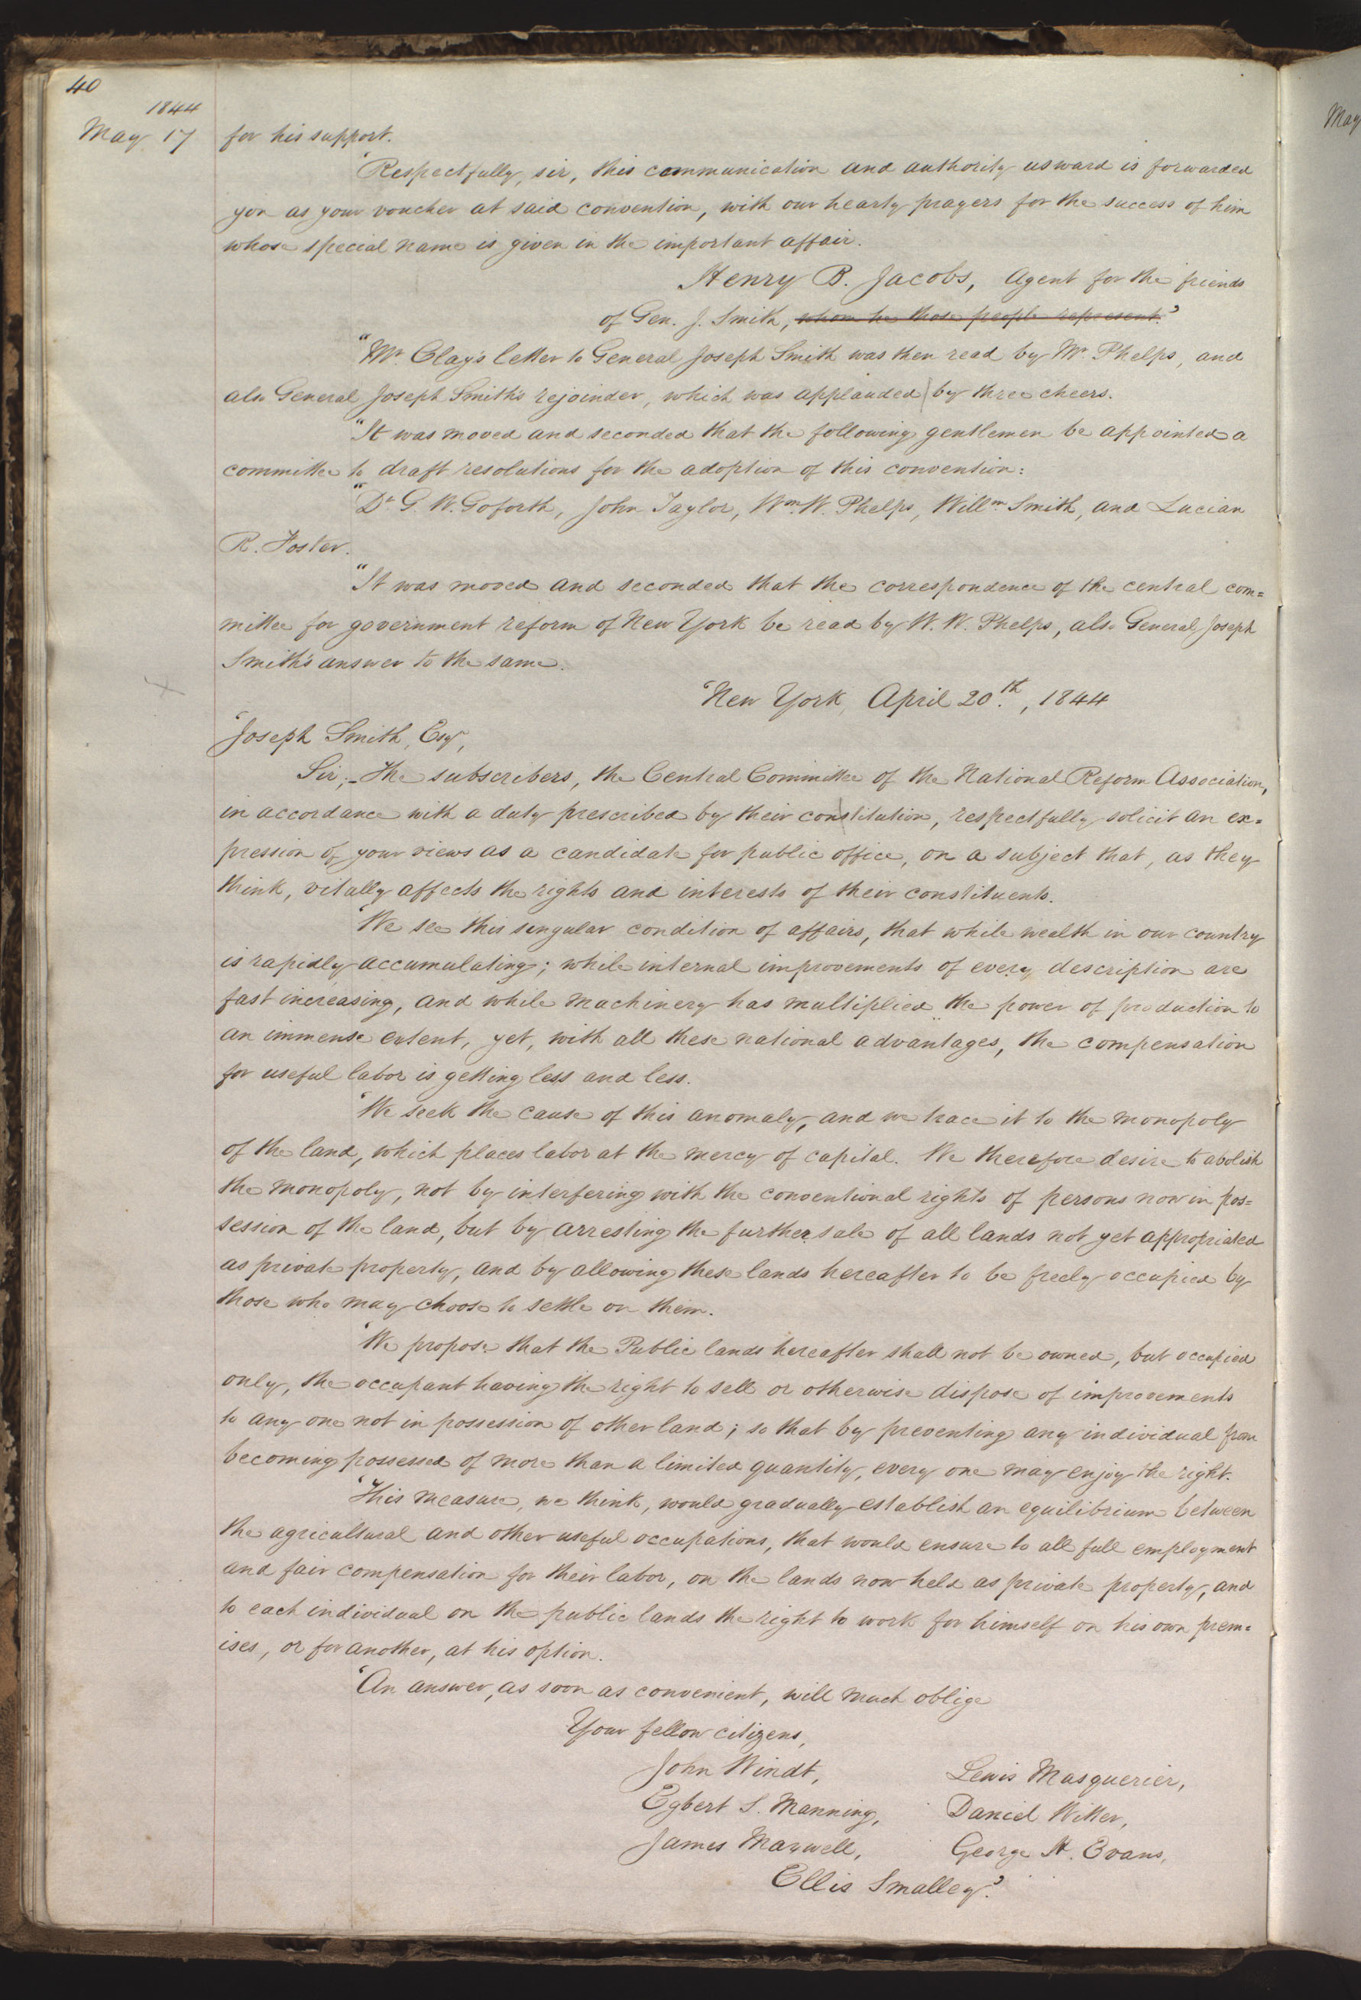 40
1844
May 17 for his support.
"Respectfully, sir, this communication and authority usward is forwarded
you as your voucher at said convention, with our hearty prayers for the success of him
whose special name is given in the important affair.
Henry B. Jacobs, Agent for the friends
of Gen. J. Smith, whom he those people represent.'
"Mr Clay's letter to General Joseph Smith was then read by Mr. Phelps, and
also General Joseph Smith's rejoinder, which was applauded by three cheers.
"It was moved and seconded that the following gentlemen be appointed a
committee to draft resolutions for the adoption of this convention:
"Dr G. W. Goforth, John Taylor, Wm. W. Phelps, Willm Smith, and Lucian
R. Foster.
"It was moved and seconded that the correspondence of the central com=
mittee for government reform of New York be read by W. W. Phelps, also General Joseph
Smith's answer to the same.
'New York, April 20th., 1844
'Joseph Smith, Esqr,
Sir,- The subscribers, the Central Committee of the National Reform Association,
in accordance with a duty prescribed by their constitution, respectfully solicit an ex=
pression of your views as a candidate for public office, on a subject that, as they
think, vitally affects the rights and interests of their constituents.
'We see this singular condition of affairs, that while wealth in our country
is rapidly accumulating; while internal improvements of every description are
fast increasing, and while machinery has multiplied the power of production to
an immense extent, yet, with all these national advantages, the compensation
for useful labor is getting less and less.
'We seek the cause of this anomaly, and we trace it to the monopoly
of the land, which places labor at the mercy of capital. We therefore desire to abolish
the monopoly, not by interfering with the conventional rights of persons now in pos=
session of the land, but by arresting the further sale of all lands not yet appropriated
as private property, and by allowing these lands hereafter to be freely occupied by
those who may choose to settle on them.
'We propose that the Public lands hereafter shall not be owned, but occupied
only, the occupant having the right to sell or otherwise dispose of improvements
to any one not in possession of other land; so that by preventing any individual from
becoming possessed of more than a limited quantity, every one may enjoy the right.
'This measure, we think, would gradually establish an equilibrium between
the agricultural and other useful occupations, that would ensure to all full employment
and fair compensation for their labor, on the lands now held as private property, and
to each individual on the public lands the right to work for himself on his own prem=
ises, or for another, at his option.
'An answer, as soon as convenient, will much oblige
Your fellow citizens,
John Windt, Lewis Masquerier,
Egbert S. Manning, Daniel Witter,
James Maxwell, George H. Evans,
Ellis Smalley.'
May